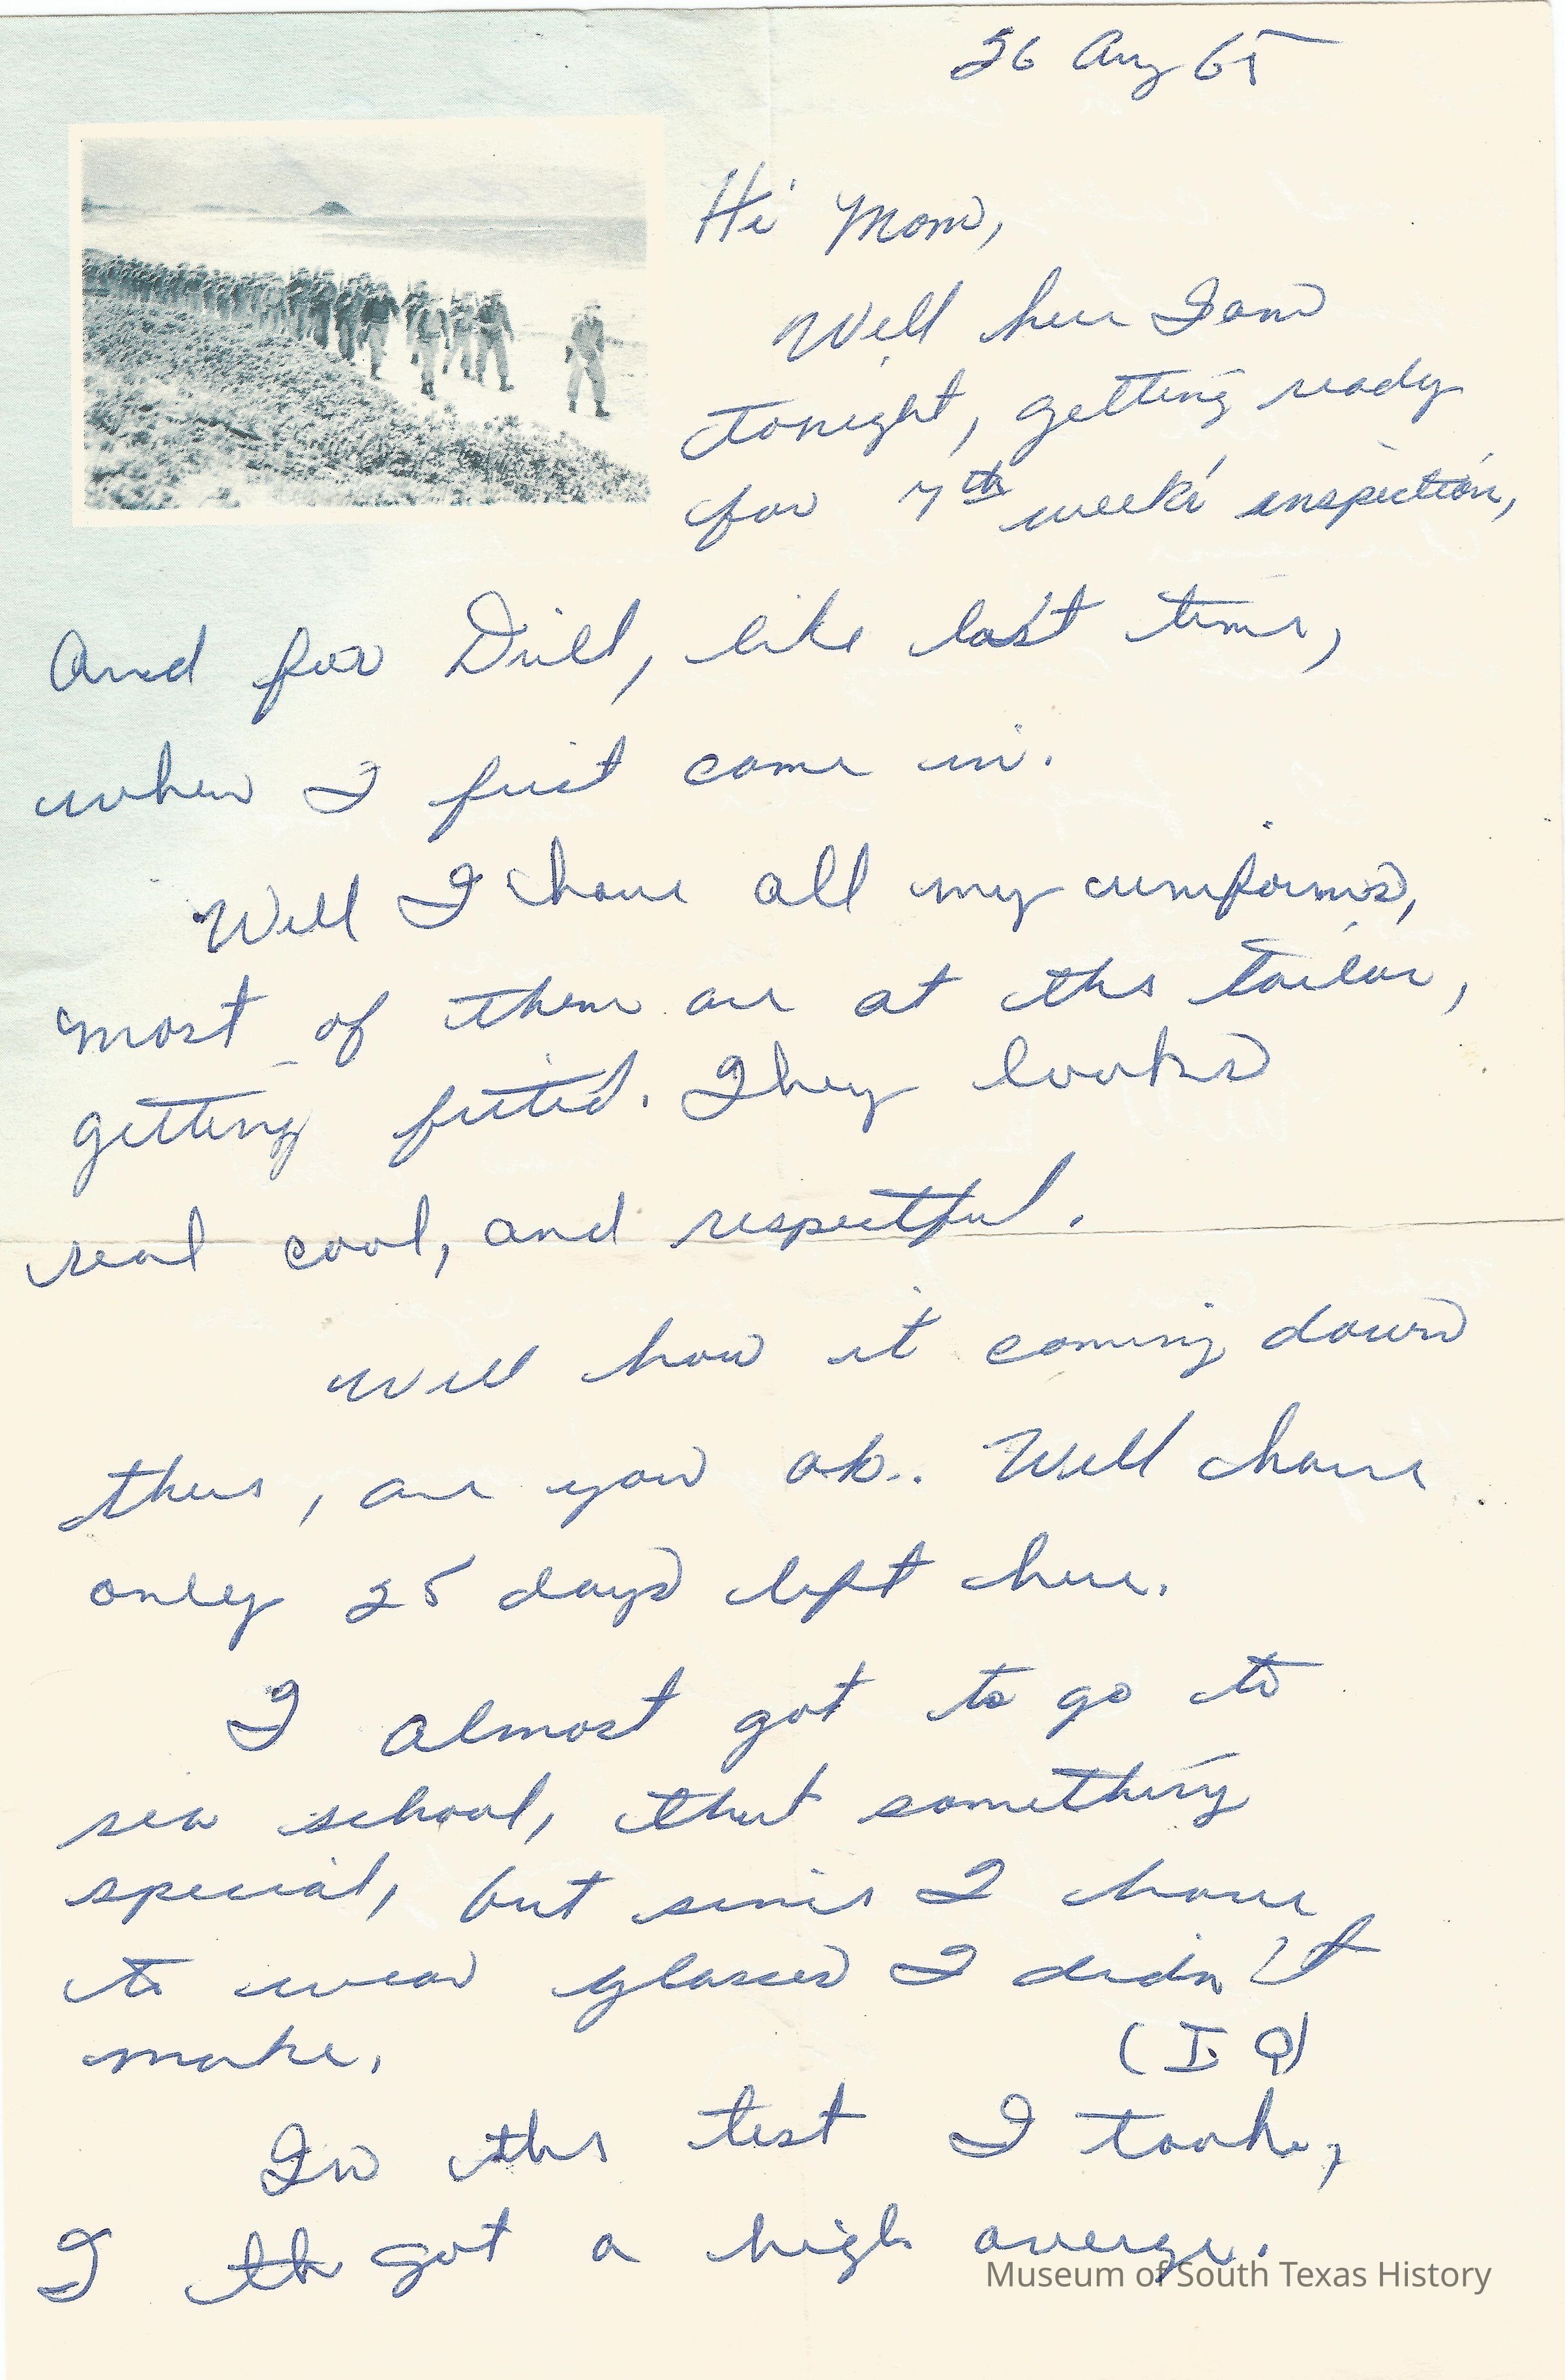 26 Aug 65
Hi Mom,
Well here I am
tonight, getting ready
for 7th week's inspection,
And for Drill, like last time,
when I first came in.
Well I have all my uniforms,
most of them are at the tailor,
getting fitted. They looks
real cool, and respectful.
Well how it coming down
there, are you ok.. Well have
only 25 days left here.
I almost got to go to
sea school, that something
special, but sinis I have
to wear glasses I didn't
make.
(I.Q)
In the test I tooke,
I th got a high averge.
Museum of South Texas History